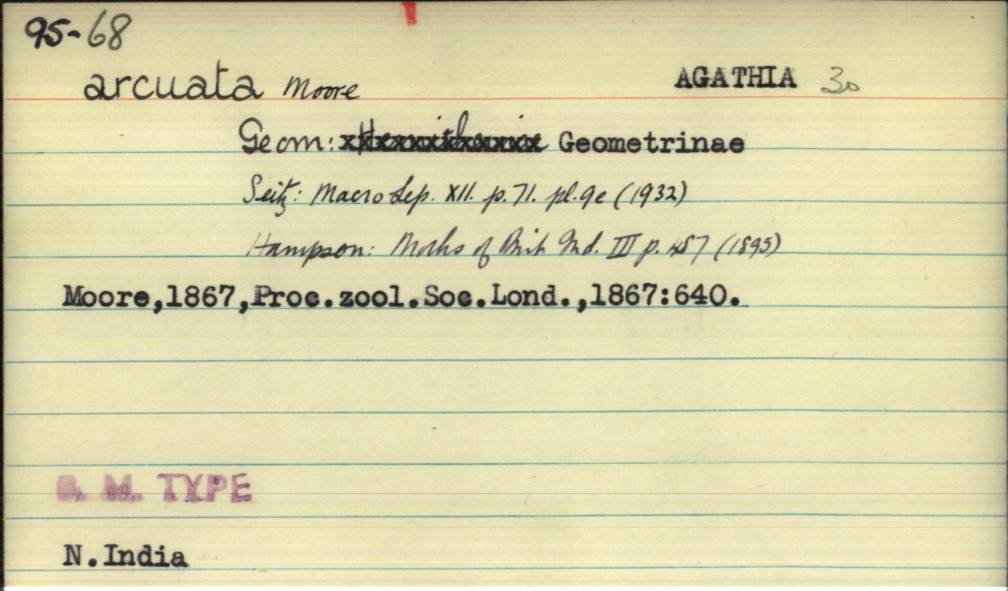 95-68
arcuata Moore AGATHIA 30
Geom: Geometrinae
Seitz: Macro Lep. XII. p. 71. pl. 9e (1932)
Hampson: Moths of Brit Ind. III p. 487 (1895)
Moore,1867,Proc.zool.Soc.Lond.,1867:640.
B. M. TYPE
N.India